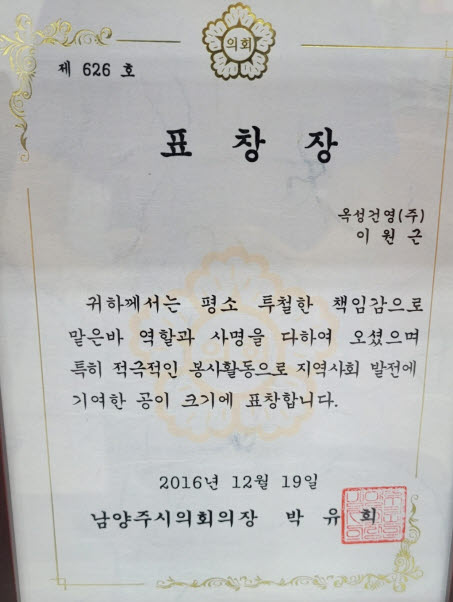 의회
제 626 호
표 창 장
옥성건영(주)
이 원 근
귀하께서는 평소 투철한 책임감으로
맡은바 역할과 사명을 다하여 오셨으며
특히 적극적인 봉사활동으로 지역사회 발전에
기여한 공이 크기에 표창합니다.
2016년 12월 19일
남양주시의회의장 박 유 희